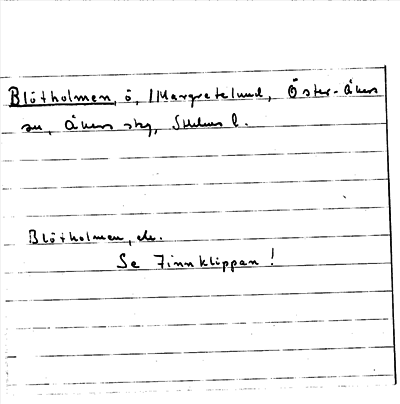 Blötholmen, ö, /Margretelund, Öster-Åkers
sn, Åkers skg, Sthlms l.
Blötholmen, ö.
Se Finnklippan!